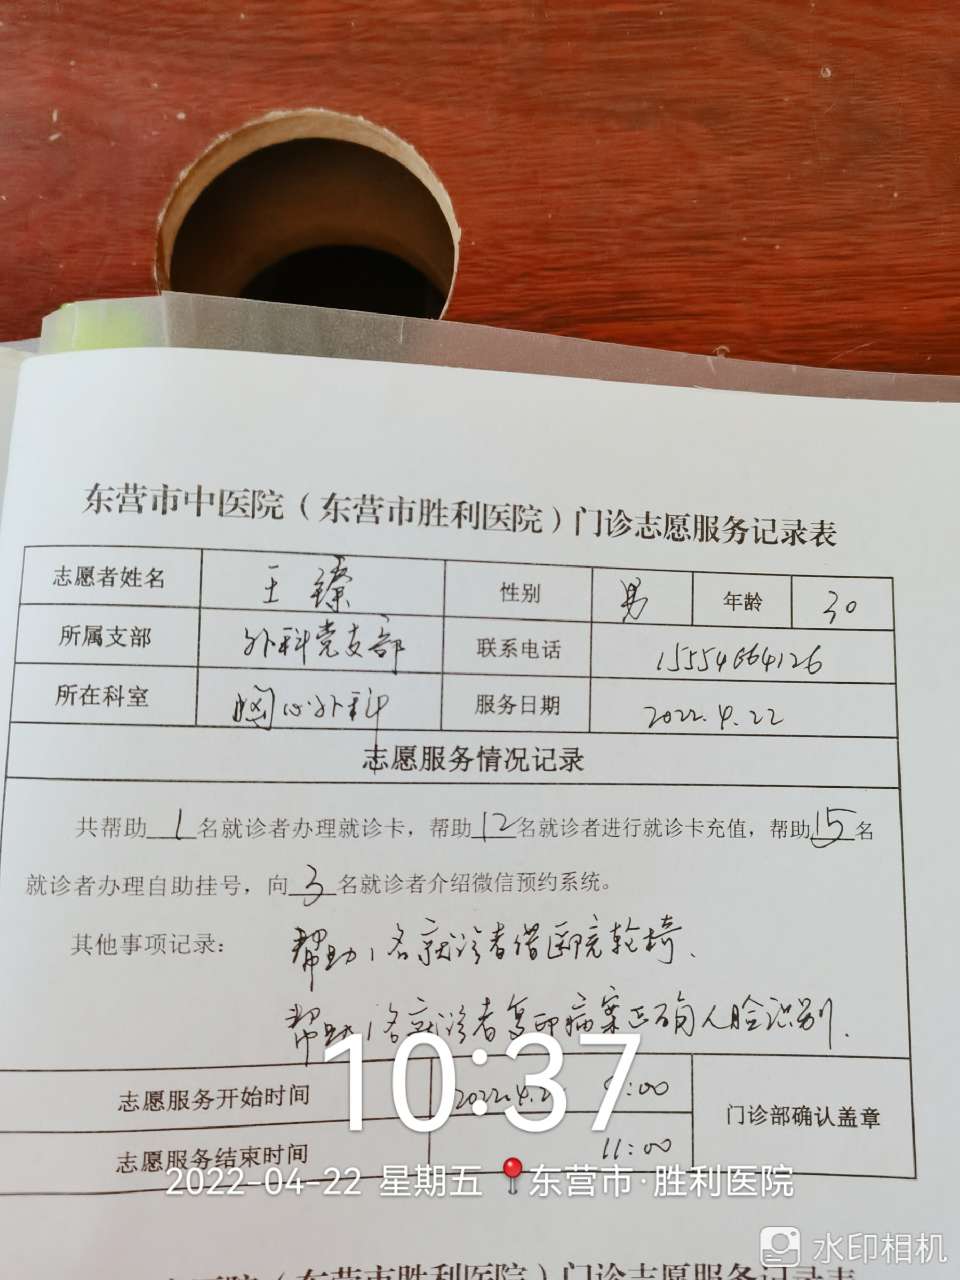 东营市中医院（东营市胜利医院）门诊志愿服务记录表
志愿者姓名 王臻 性别 男 年龄 30
所属支部 外科党支部 联系电话 15554664126
所在科室 胸心外科 服务日期 2022.4.22
志愿服务情况记录
共帮助1名就诊者办理就诊卡，帮助12名就诊者进行就诊卡充值，帮助15名
就诊者办理自助挂号，向3名就诊者介绍微信预约系统。
其他事项记录： 帮助1名就诊者借医院轮椅、
帮助1名就诊者复印病案正确人脸识别.
10:37
志愿服务开始时间 2022.4.2 :00
门诊部确认盖章
志愿服务结束时间 11:00
2022-04-22 星期五 东营市·胜利医院
水印相机
中医院（东营市胜利医院）门诊志愿服务记录表